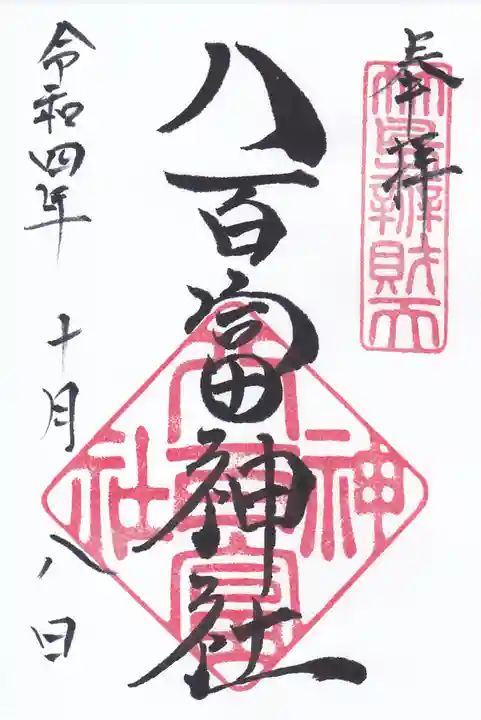 奉拝
八百富神社
令和四年 十月 八日
八百富神社